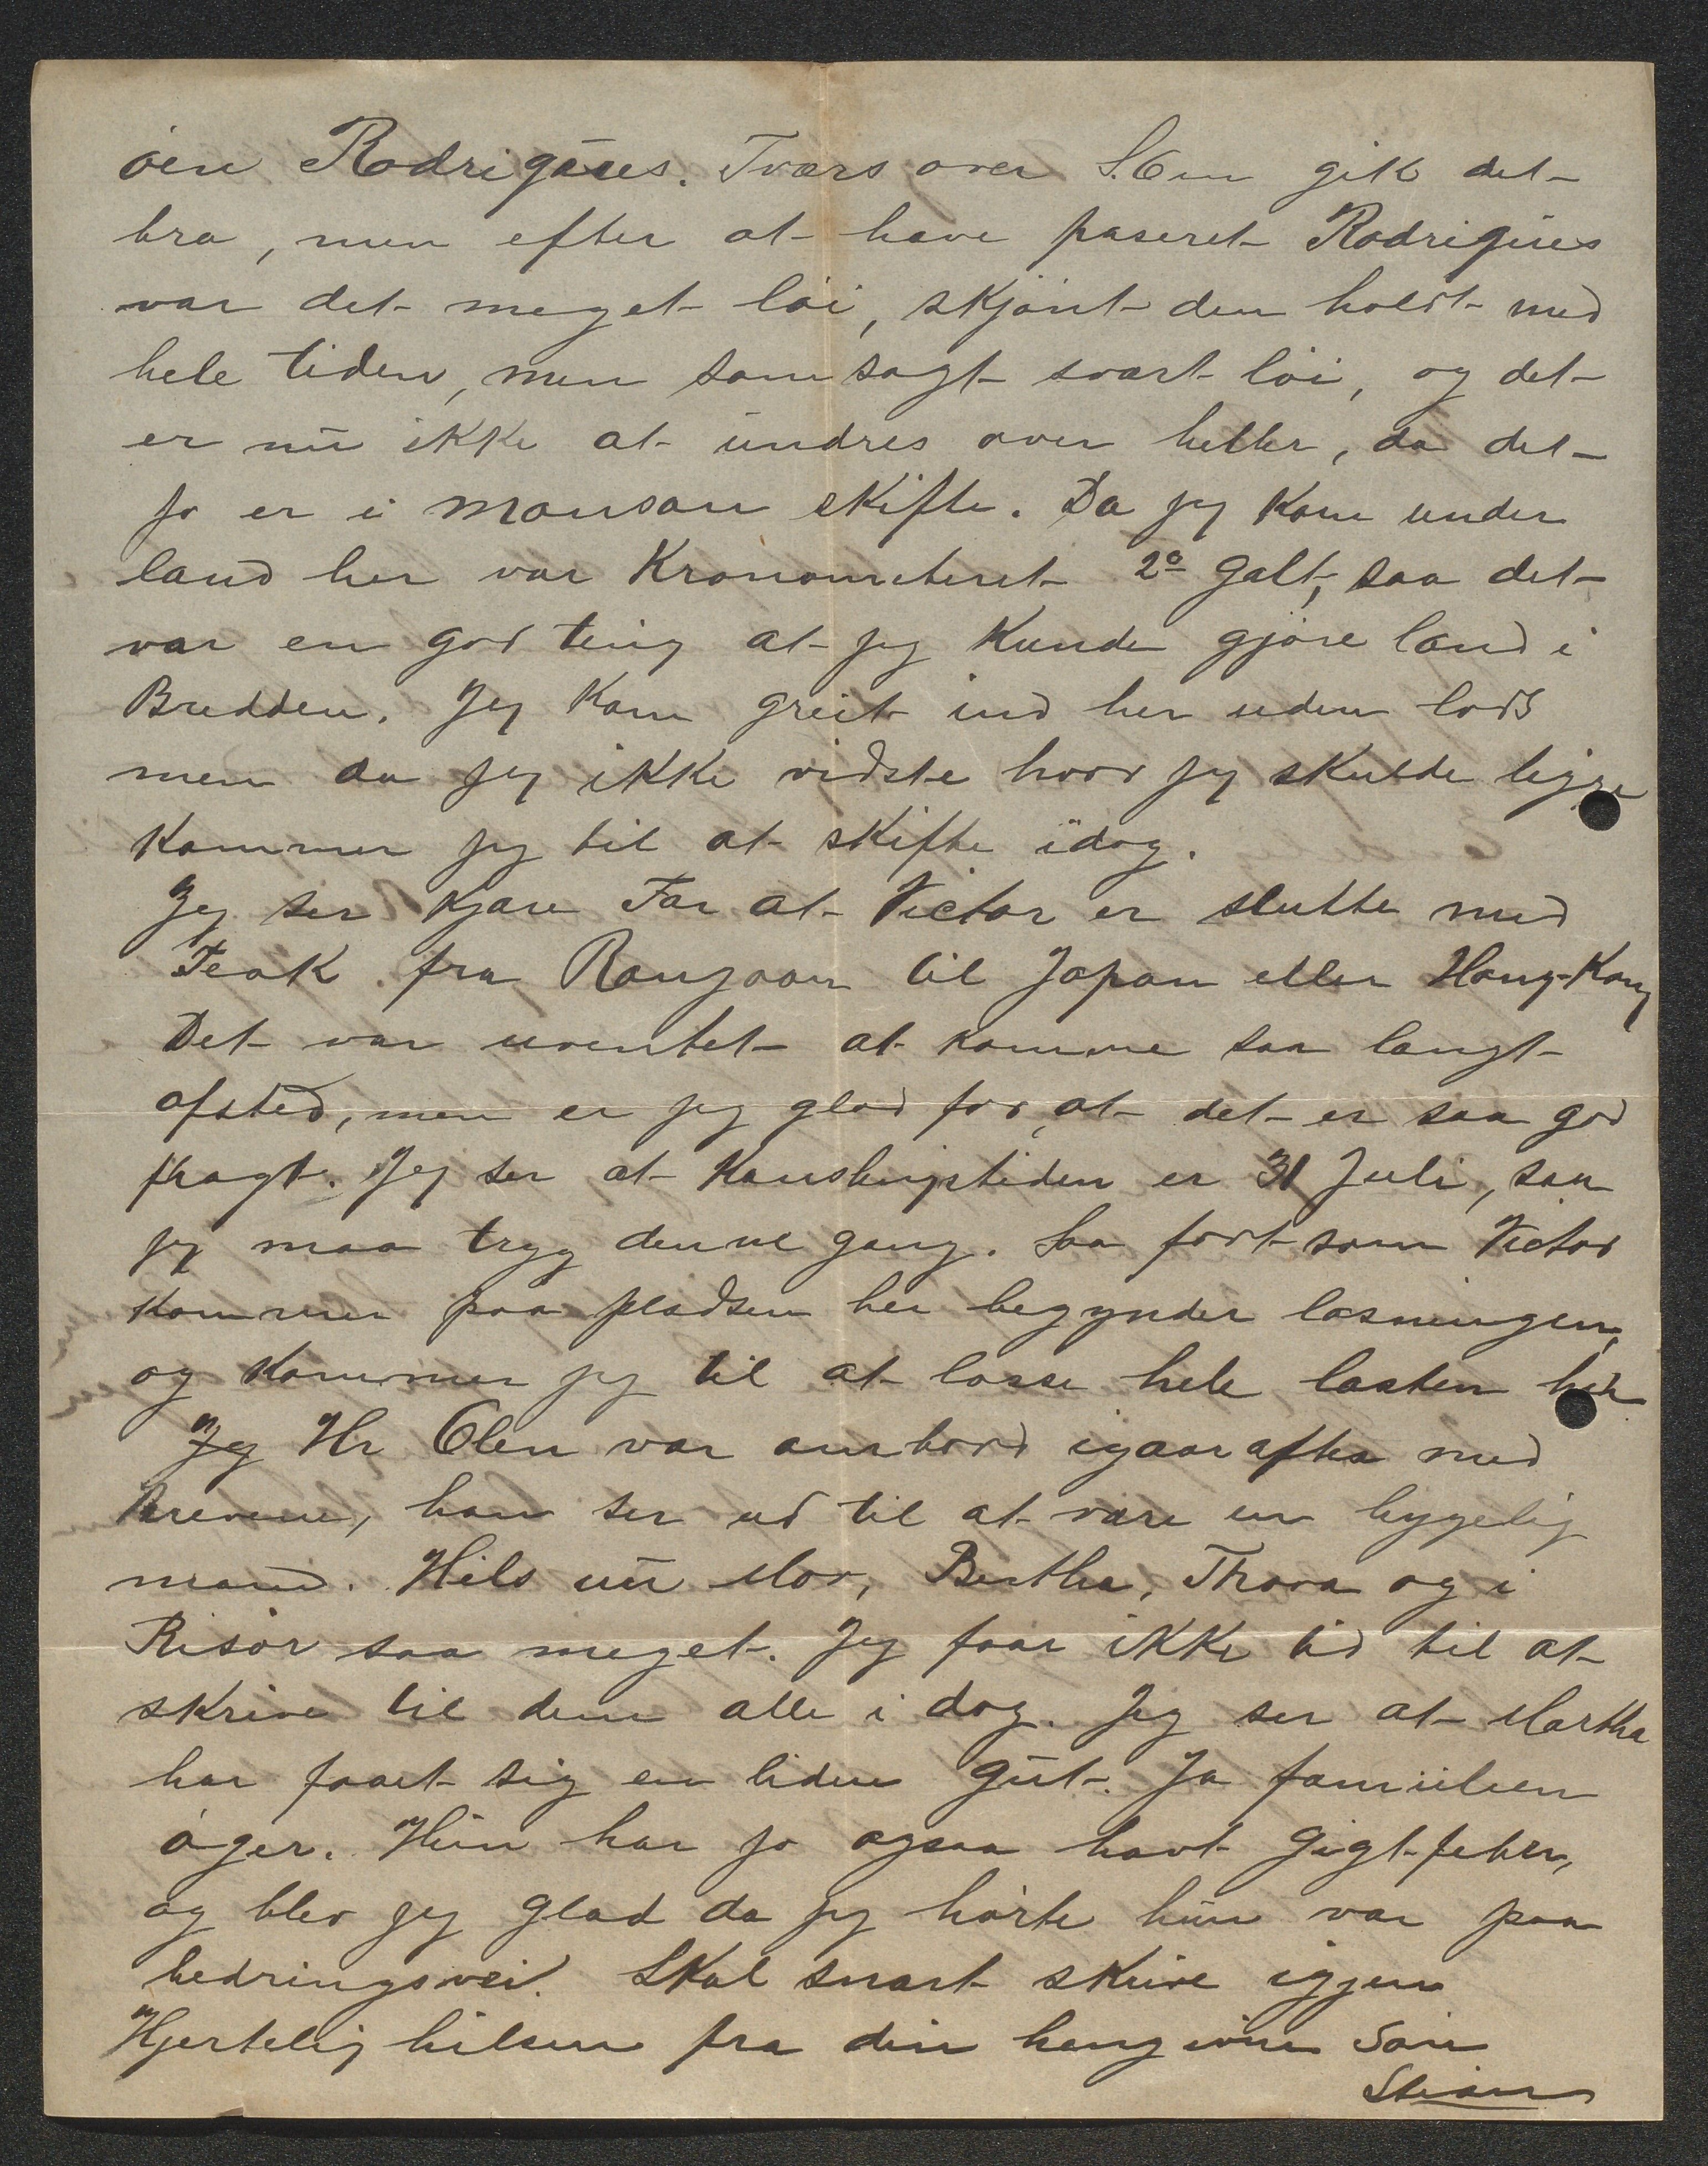 øen Rodrigues. Tvers over S.Ø.en gik det
bra, men efter at have paseret Rodrigues
var det meget løi, skjønt den holdt med
hele tiden, men som sagt svært løi, og det
er nu ikke at undres over heller, da det
jo er i monson skifte. Da jeg kom under
land her var Kronometeret 2º galt, saa det
var en god ting at jeg kunde gjøre land i
Bredden. Jeg kom greit ind her uden lods
men da jeg ikke vidste hvor jeg skulde ligge
kommer jeg til at skifte idag.
Jeg ser kjære Far at Victor er slutte med
Teak fra Rangoon til Japan eller Hong-Kong
Det var uventet at komme saa langt
afsted, men er jeg glad for, at det er saa god
fragt. Jeg ser at Kanslingstiden er 31 Juli, saa
jeg maa tryg denne gang. Saa fort som Victor
kommer paa pladsen her begynder losningen,
og kommer jeg til at losse hele lasten her
Jeg Hr Olsen var ombord igaar aftes med
Brevene, han ser ud til at være en hygelig
mand. Hils nu Mor, Bertha, Thora og i
Risør saa meget. Jeg faar ikke tid til at
skrive til dem alle i dag. Jeg ser at Martha
har faaet sig en liden gut. Ja familien
øger. Hun har jo ogsaa havt gigtfeber,
og blev jeg glad da jeg hørte hun var paa
bedringsvei. Skal snart skrive igjen
Hjertelig hilsen fra din hengivne Søn